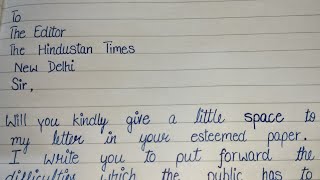 To
The Editor
The Hindustan Times
New Delhi
Sir,
Will you kindly give a little space to
my letter in your esteemed paper.
I write you to put forward the
difficulties which the public has to